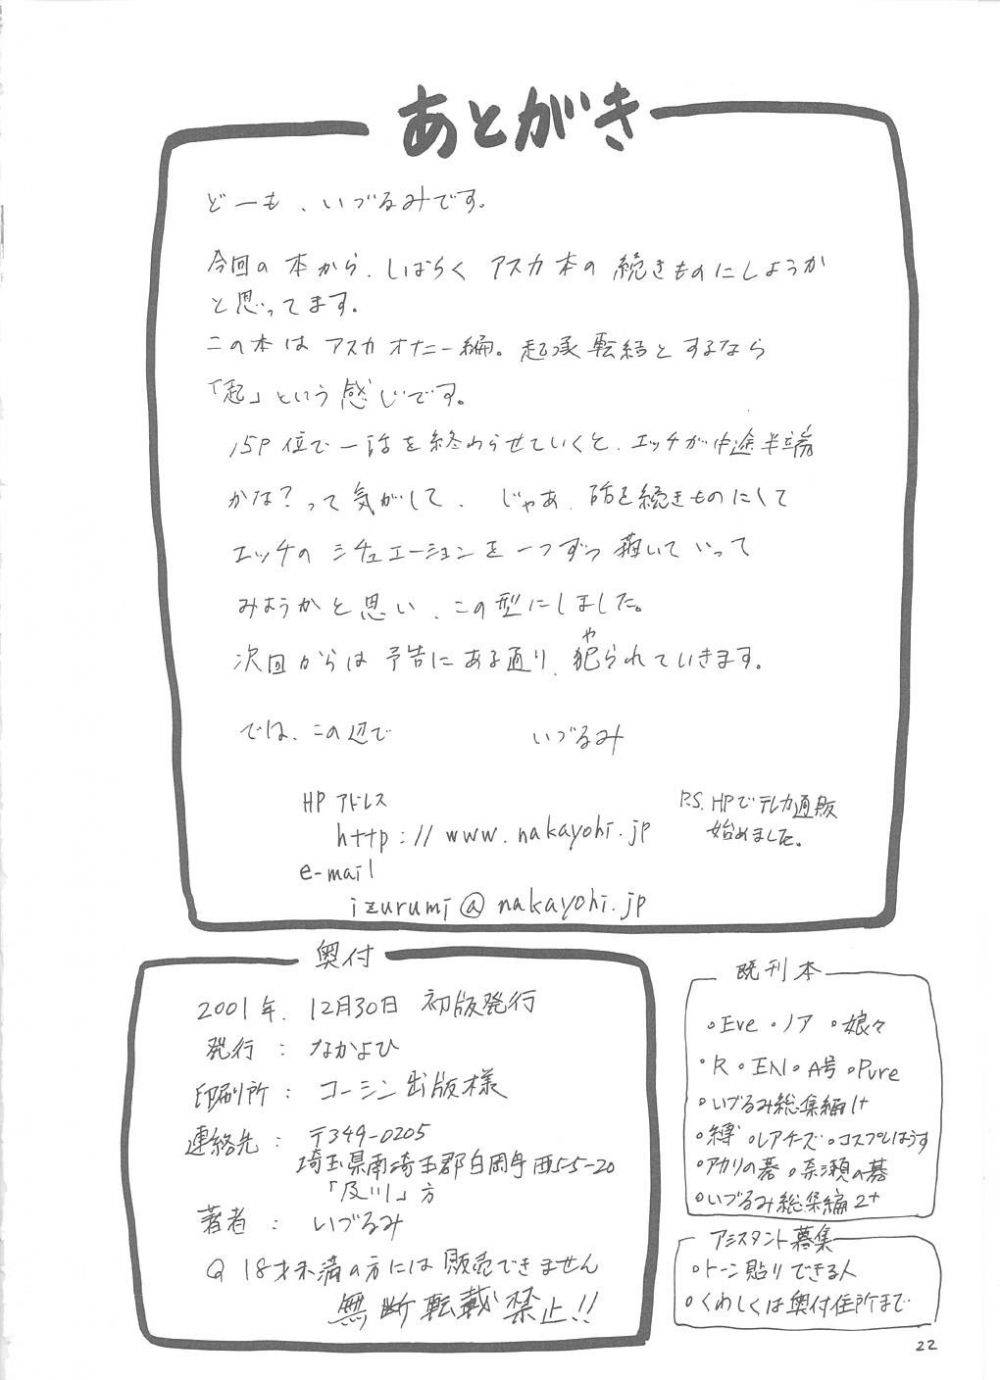 あとがき
どーも、いづるみです。
今回の本から、しばらくアスカ本の続きものにしようか
と思ってます。
この本はアスカオナニー編。起承転結とするなら
「起」という感じです。
15P位で一話を終わらせていくと、エッチが中途半端
かな?って気がして、じゃあ、話を続きものにして
エッチのシチュエーションを一つずつ描いていって
みようかと思い、この型にしました。
や
次回からは予告にある通り、犯られていきます。
では、この辺で いづるみ
HPアドレス
http://www.nakayohi.jp
e-mail
izurumi@nakayohi.jp
P.S. HPでテレカ通販
始めました。
奥付
2001年.12月30日 初版発行
発行:なかよひ
印刷所:コーシン出版様
連絡先:〒349-0205
埼玉県南埼玉郡白岡町西5-5-20
「及川」方
著者:いづるみ
18才未満の方には販売できません
無断転載禁止!!
既刊本
・Eve ・ノア ・娘々
・R ・EN ・A号 ・Pure
・いづるみ総集編1+
・縛 ・レアチーズ ・コスプレはうす
・アカリの碁 ・奈瀬の碁
・いづるみ総集編2+
アシスタント募集
・トーン貼りできる人
・くわしくは奥付住所まで
22